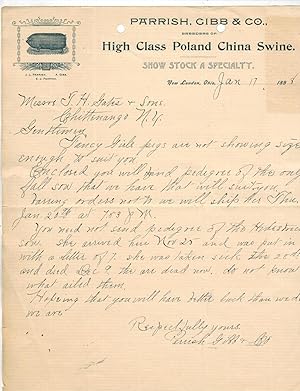 PARRISH, GIBB & CO.,
BREEDERS OF
High Class Poland China Swine.
SHOW STOCK A SPECIALTY.
New London, Ohio, Jan 17 189
Messrs T. H. Gates & Sons.
Chittenango N.Y.
Gentlemen
Fancy Girls pigs are not showing size
enough to suit you.
Enclosed you will find pedigree of the only
fall sow that we have that will suit you.
Baring orders not to we will ship her Thu.
Jan 20th at 7:03 P.M.
You need not send pedigree of the
sow. She arrived here Nov 25 and was put in
with a litter of 7. she was taken sick the 20th
and died Dec 9. the are dead now. do not know
what ailed them.
Hoping that you will have better luck than we
we are
Respectfully yours
Parrish Gibb & Co